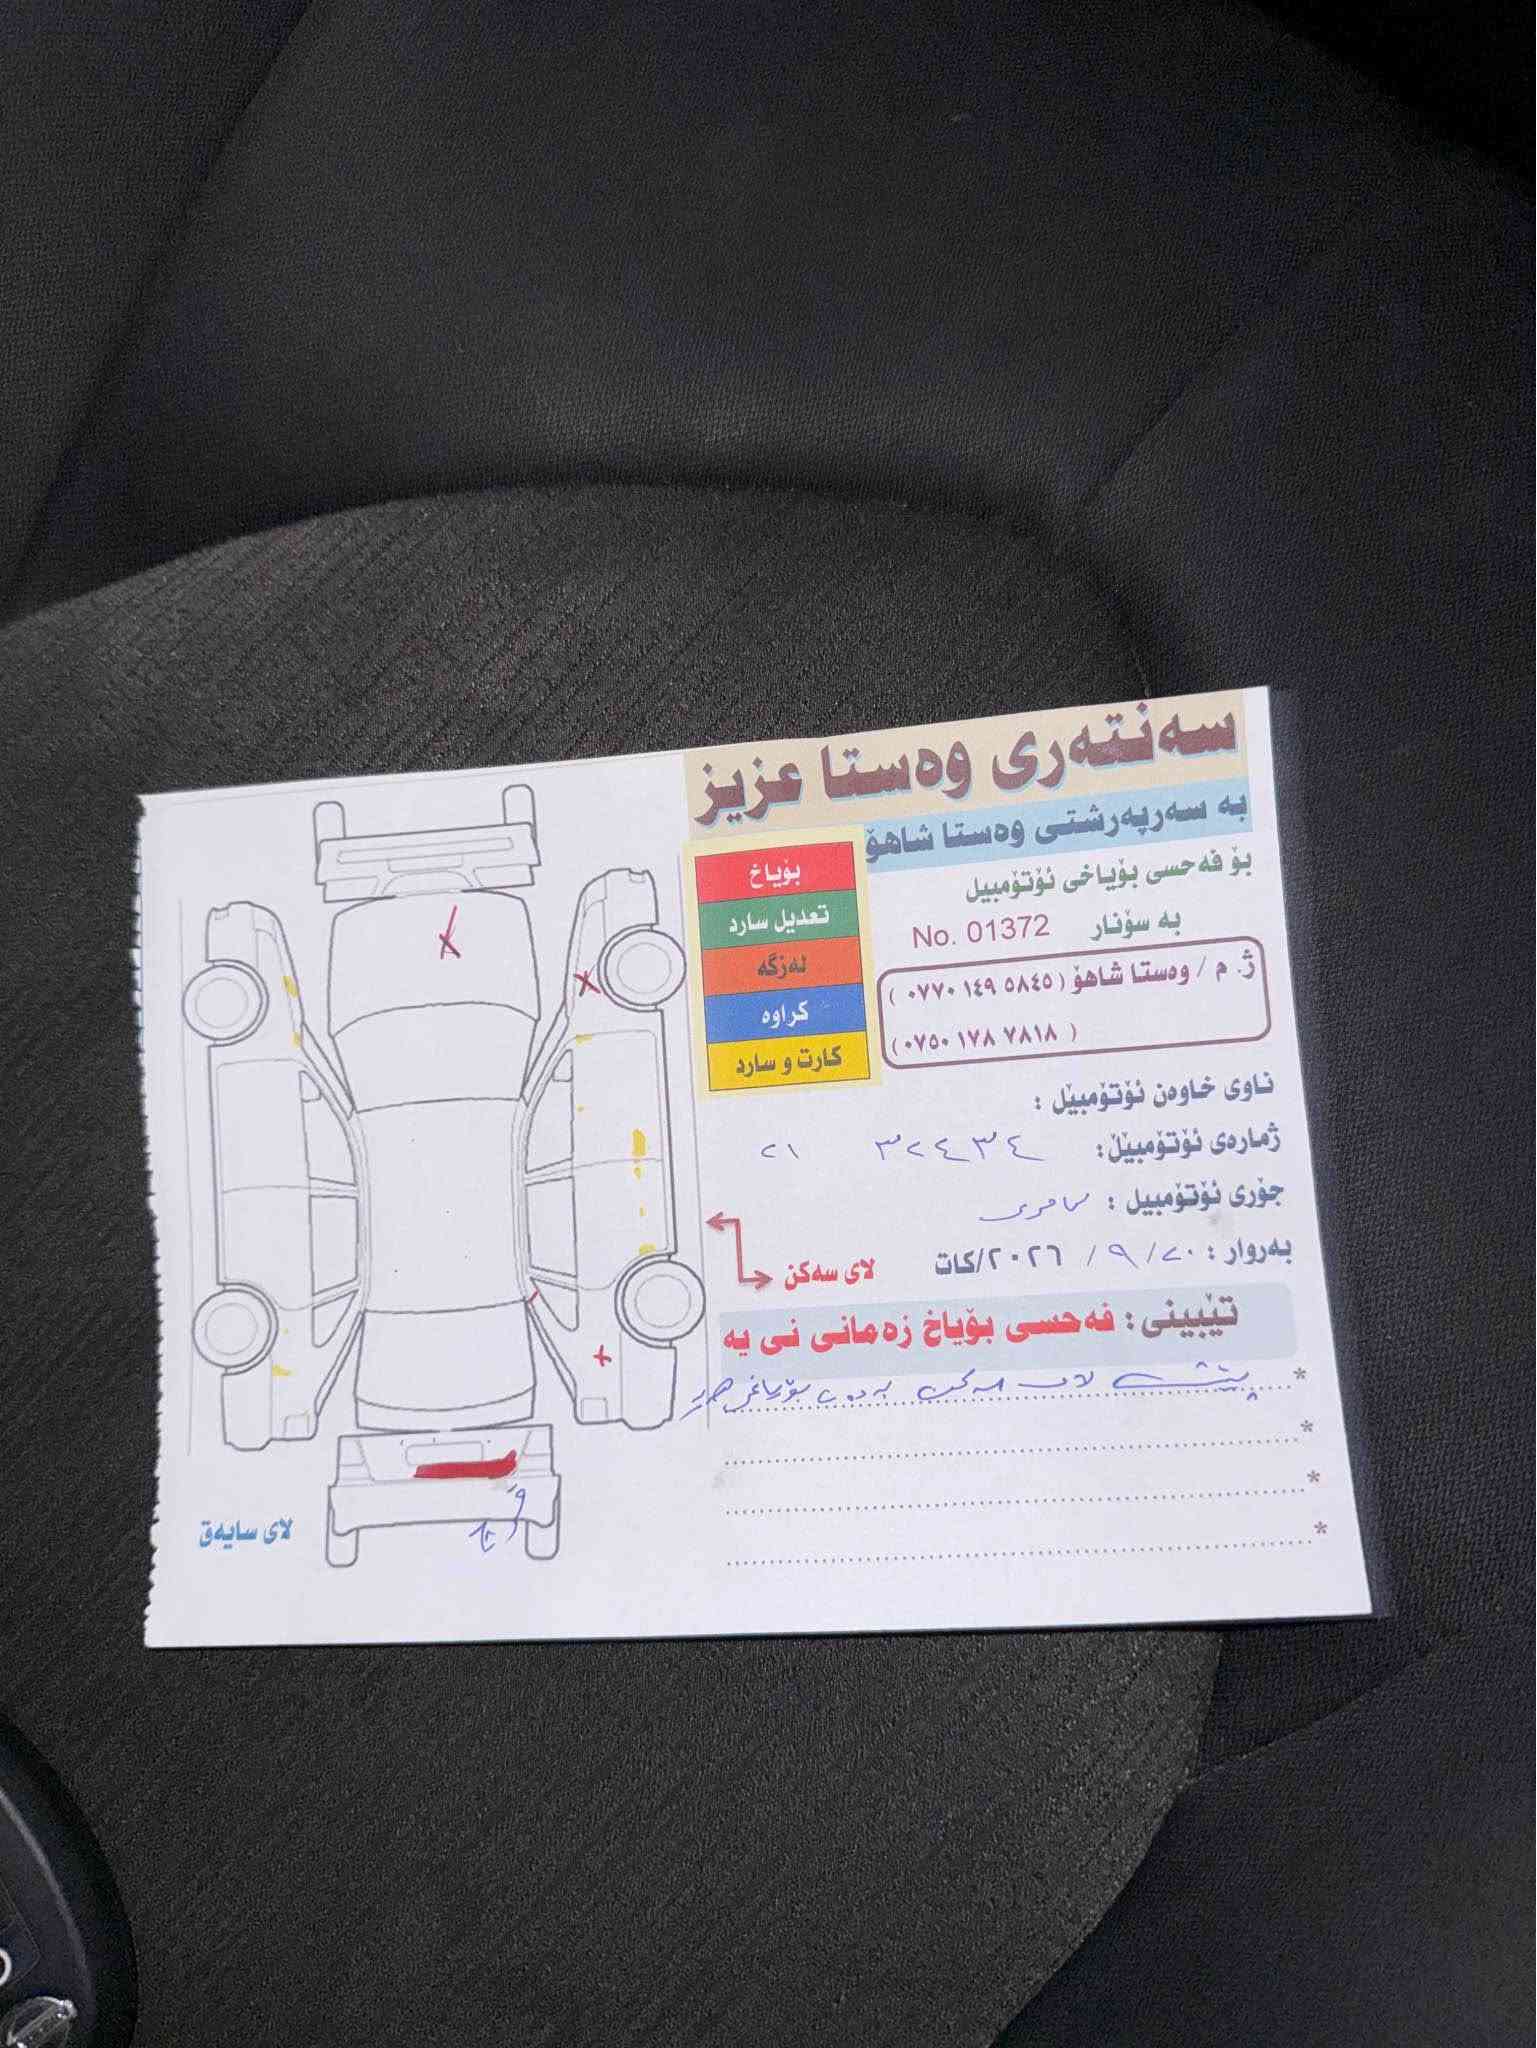 سەنتەری وەستا عزیز
بە سەرپەرشتی وەستا شاهۆ
بۆ فەحسی بۆیاخی ئۆتۆمبیل
بە سۆنار No. 01372
ژ. م / وەستا شاهۆ ( ٠٧٧٠ ١٤٩ ٥٨٤٥ )
( ٠٧٥٠ ١٧٨ ٧٨١٨ )
بۆیاخ
تعدیل سارد
لەزگە
کراوە
کارت و سارد
ناوی خاوەن ئۆتۆمبێل :
ژمارەی ئۆتۆمبێل: ٣٢٤٣٤ ٢١
جۆری ئۆتۆمبیل :
بەروار : ٢٠/ ٩ / ٢٠٢٦/کات
لای سەکن
تێبینی : فەحسی بۆیاخ زەمانی نی یە
* لای سەکن
*
*
*
لای سایەق